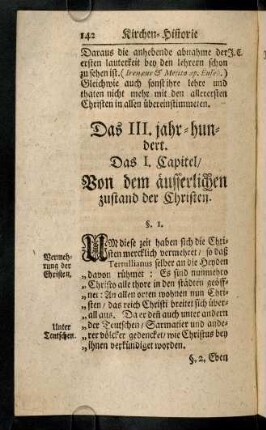 142 Kirchen-Historie
Daraus die anhebende abnahme der J.C.
ersten lauterkeit bey den lehrern schon
zu sehen ist. (Irenæus & Melito ap. Euseb.)
Gleichwie auch sonst ihre lehre und
thaten nicht mehr mit den allerersten
Christen in allen übereinstimmeten.
Das III. jahr-hun-
dert.
Das I. Capitel/
Von dem äusserlichen
zustand der Christen.
§. 1.
UM diese zeit haben sich die Chri-
sten mercklich vermehret/ so daß
Vermeh-
rung der
Christen.
Tertullianus selber an die Heyden
„davon rühmet: Es sind nunmehro
„Christo alle thore in den städten geöff-
„net: An allen orten wohnen nun Chri-
„sten/ das reich Christi breitet sich über-
„all aus. Da er deñ auch unter andern
Unter
Teutschen.
„der Teutschen/ Sarmatier und ande-
„rer völcker gedencket/ wie Christus bey
„ihnen verkündiget worden.
§. 2. Eben